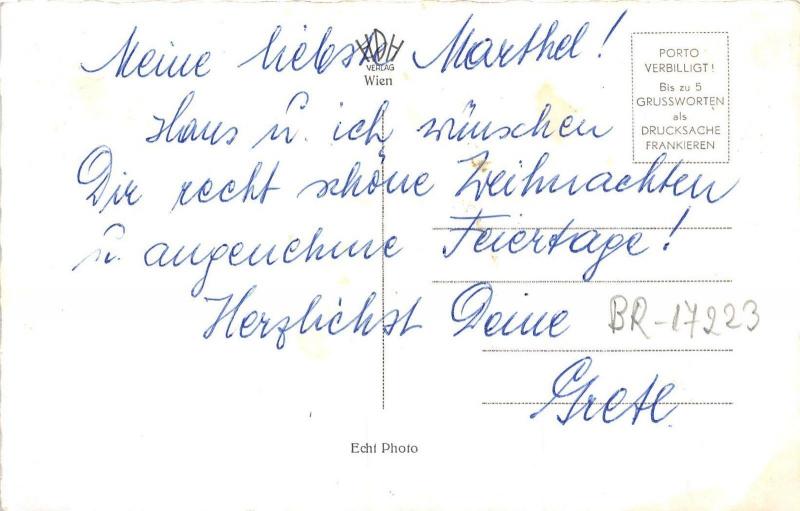 Meine liebste Marthel!
HDH
VERLAG
Wien
PORTO
VERBILLIGT!
Bis zu 5
GRUSSWORTEN
als
DRUCKSACHE
FRANKIEREN
Hans u. ich wünschen
Dir recht schöne Weihnachten
u. angenehme Feiertage!
Herzlichst Deine
BR-17223
Gretl
Echt Photo